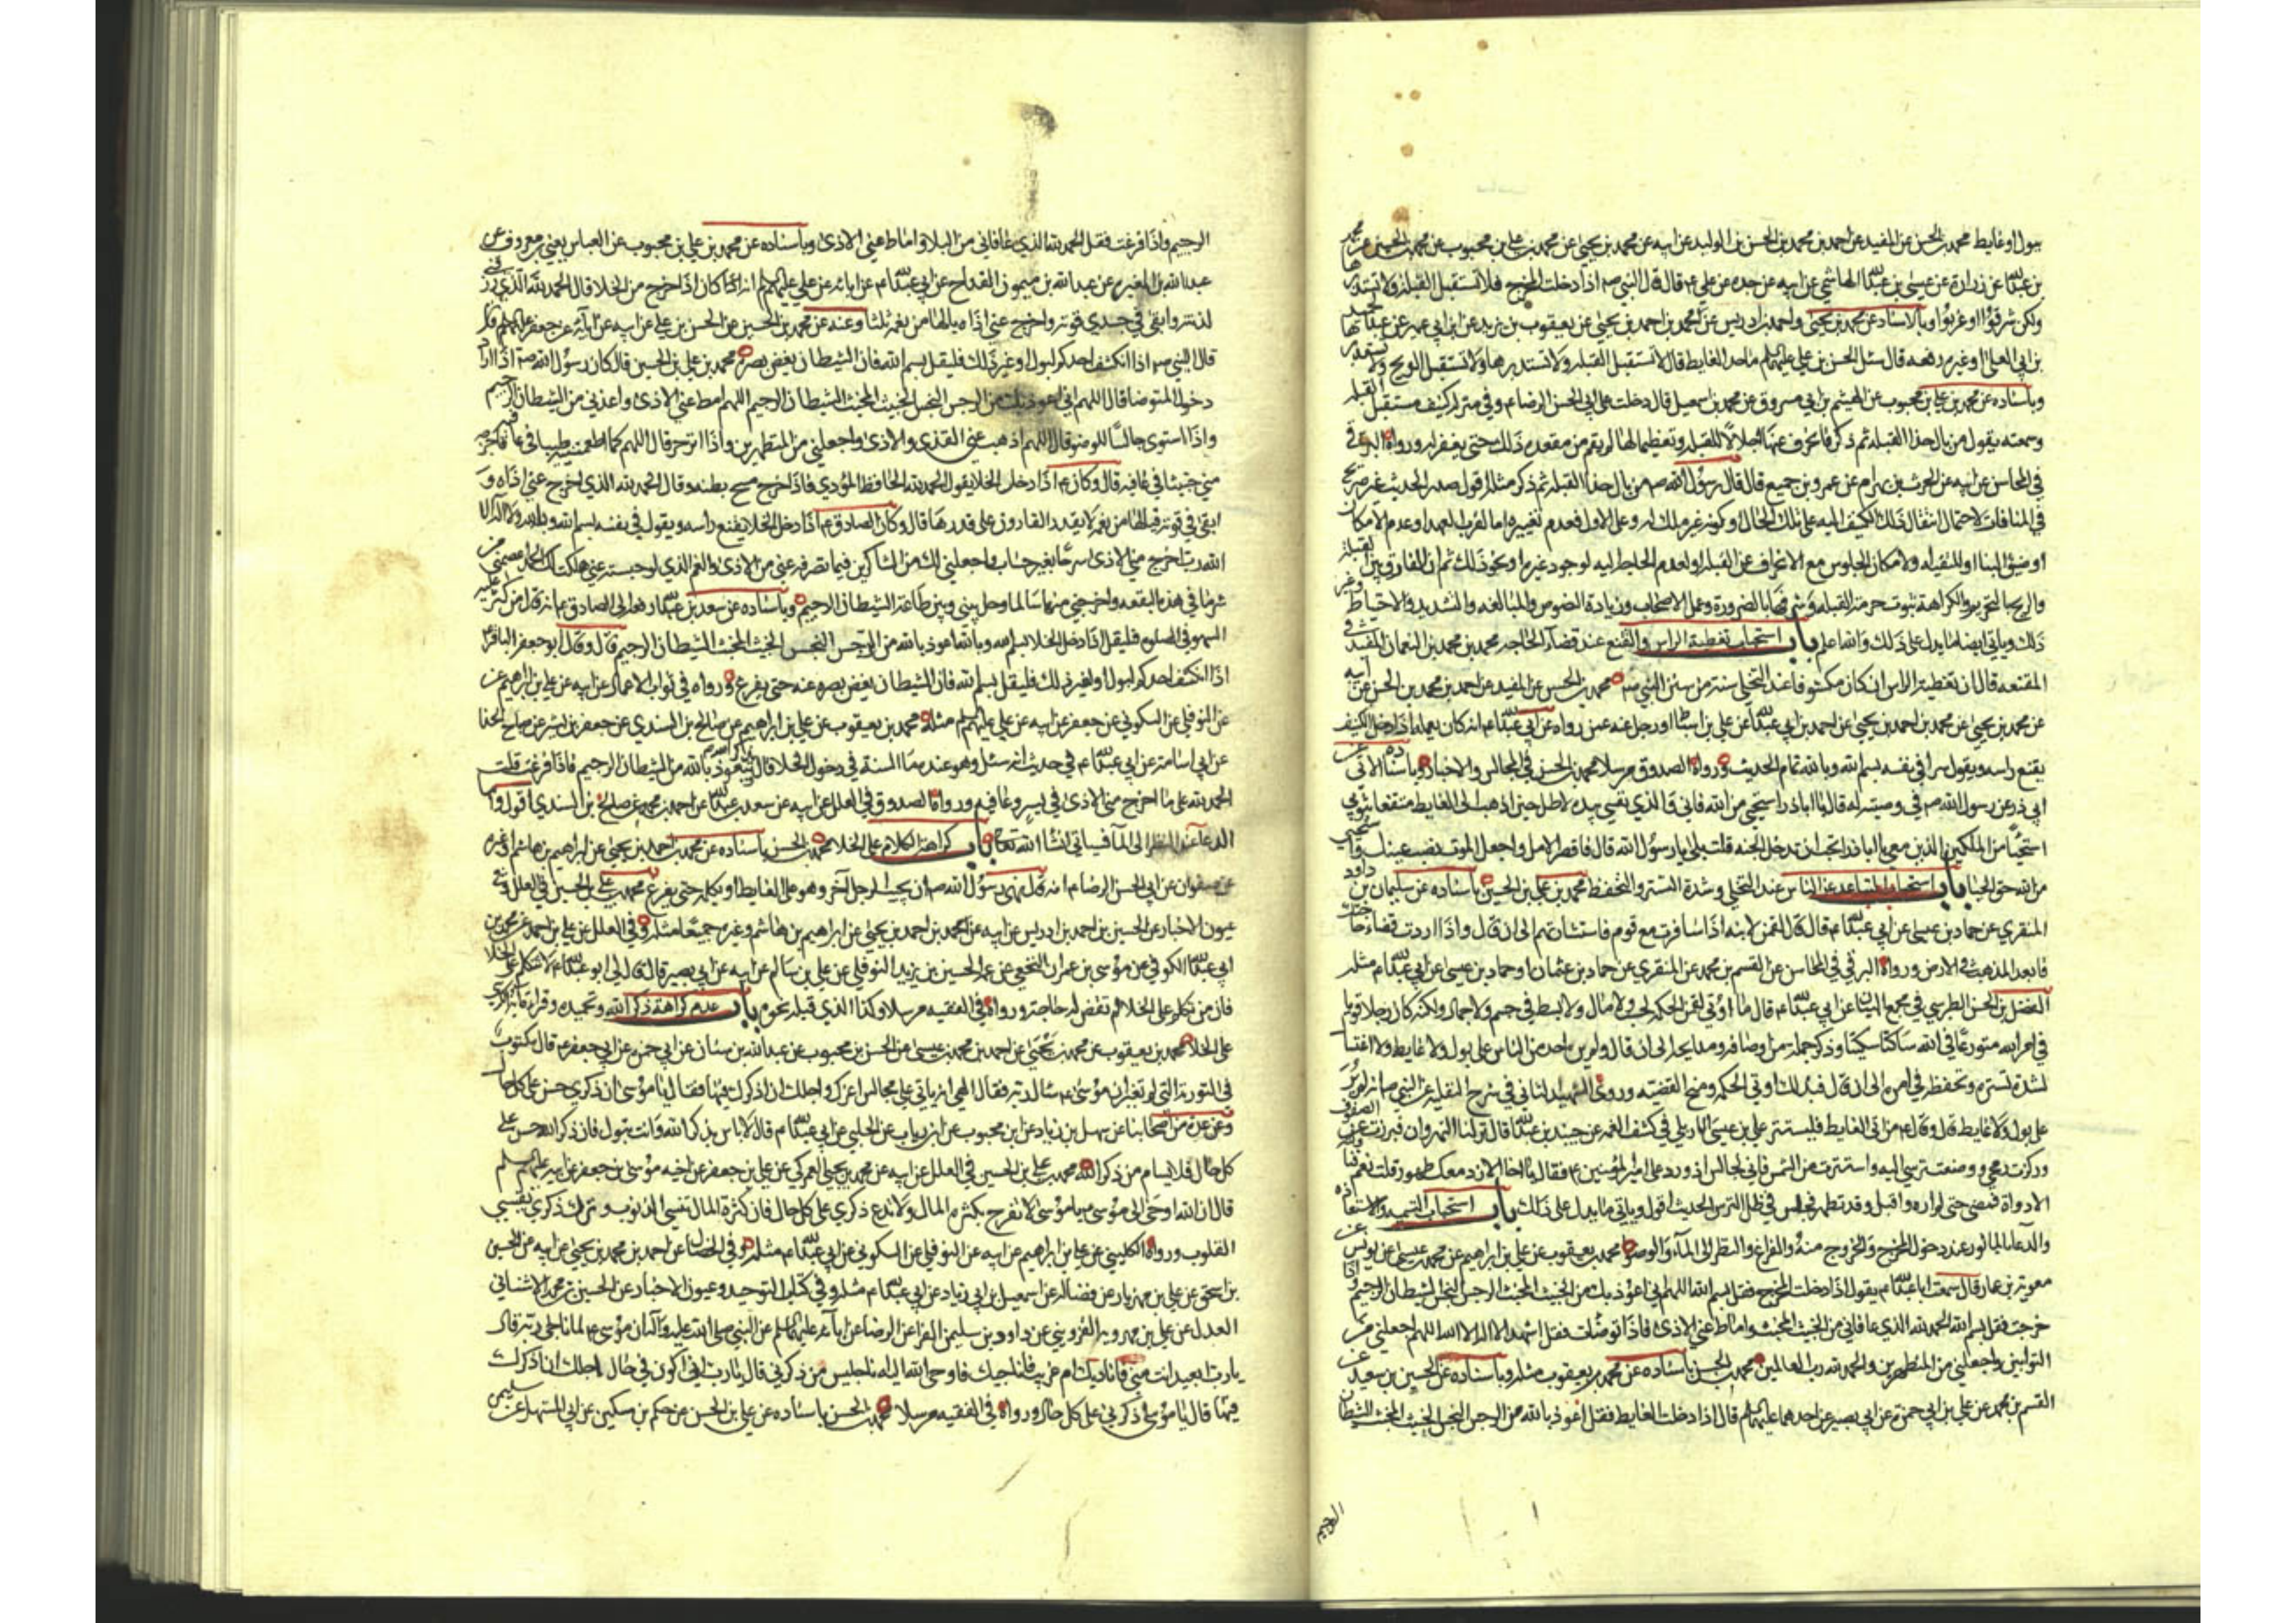 ببول او غايط محمد بن الحسن عن المفيد عن احمد بن محمد بن الحسن بن الوليد عن ابيه عن محمد بن يحيى عن محمد بن علي بن محبوب عن محمد بن الحسين عن محمد
بن عبدالله عن زرارة عن عيسى بن عبدالله الهاشمي عن ابيه عن جده عن علي ع قال قال النبي ص اذا دخلت المخرج فلا تستقبل القبلة ولا تستدبرها
ولكن شرقوا او غربوا وبالاسناد عن محمد بن يحيى واحمد بن ادريس عن محمد بن احمد بن يحيى عن يعقوب بن يزيد عن ابن ابي عمير عن عبد الحميد
بن ابي العلا او غيره رفعه قال سئل الحسن بن علي عليهما السلام ما حد الغايط قال لا تستقبل القبله ولا تستدبرها ولا تستقبل الريح ولا تستدبرها
وباسناده عن محمد بن علي بن محبوب عن الهيثم بن ابي مسروق عن محمد بن اسمعيل قال دخلت على ابي الحسن الرضا ع وفي منزله كنيف مستقبل القبله
وسمعته يقول من بال حذا القبله ثم ذكر فانحرف عنها اجلالا للقبله وتعظيما لها لم يقم من مقعده ذلك حتى يغفر له ورواه البرقي
في المحاسن عن ابيه عن عمرو بن جميع قال قال رسول الله ص من بال حذا القبله ثم ذكر مثله اقول صدر الحديث غير صريح
في المنافات لاحتمال انتقال ذلك الكنيف اليه على تلك الحال او كونه غير ملك له وعلى الاول فعدم تغييره اما لقرب العهد او عدم الامكان
ذلك وياتي ايضا ما يدل على ذلك والله اعلم باب استحباب تغطية الراس والتقنع عند قضاء الحاجه محمد بن محمد بن النعمان المفيد في
المقنعه قال ان تغطية الراس ان كان مكشوفا عند التخلي سنة من سنن النبي ص محمد بن الحسن عن المفيد عن احمد بن محمد بن الحسن عن ابيه
عن محمد بن يحيى عن محمد بن احمد بن يحيى عن احمد بن ابي عبدالله عن علي بن اسباط او رجل عنه عمن رواه عن ابي عبدالله ع انه كان يعمله اذا دخل الكنيف
يقنع راسه ويقول سرا في نفسه بسم الله وبالله تمام الحديث ورواه الصدوق مرسلا محمد بن الحسن في المجالس والاخبار باسناده الاتي عن
ابي ذر عن رسول الله ص في وصيته له قال يا اباذر استحيي من الله فاني والذي نفسي بيده لاظل حين اذهب الى الغايط متقنعا بثوبي
استحيا من الملكين الذين معي يا اباذر اتحب ان تدخل الجنه قلت بلى يا رسول الله قال فاقصر الامل واجعل الموت نصب عينك واستحيي
من الله حق الحيا باب استحباب التباعد عن الناس عند التخلي وشدة التستر والتحفظ محمد بن علي بن الحسين باسناده عن سليمان بن داود
المنقري عن حماد بن عيسى عن ابي عبدالله ع قال قال لقمن لابنه اذا سافرت مع قوم فاستشارتهم الى ان قال واذا اردت قضاء حاجتك
فابعد المذهب في الارض ورواه البرقي في المحاسن عن القسم بن محمد عن المنقري عن حماد بن عثمان او حماد بن عيسى عن ابي عبدالله ع مثله
الفضل بن الحسن الطبرسي في مجمع البيان عن ابي عبدالله ع قال ما اوتي لقمن الحكمه لحسب ولا مال ولا بسط في جسم ولا جمال ولكنه كان رجلا قويا
في امر الله متورعا في الله ساكتا سكيتا وذكر جملة من اوصافه ومدايحه الى ان قال ولم يره احد من الناس على بول ولا غايط ولا اغتسال
لشدة تستره وتحفظه في امره الى ان قال فبذلك اوتي الحكمه ومنح القضيه وروى الشهيد الثاني في شرح النفليه عن النبي ص انه لم ير
على بول ولا غايط قال وقال ع من اتى الغايط فليستتر علي بن عيسى الاربلي في كشف الغمه عن جندب بن عبدالله قال نزلنا النهروان فبرزت عن الصفوف
وركزت رمحي ووضعت ترسي اليه واستترت من الشمس فاني لجالس اذ ورد علي امير المؤمنين ع فقال يا اخا الازد معك طهور قلت نعم فناولته
الادواة فمضى حتى لم اره واقبل وقد تطهر فجلس في ظل الترس الحديث اقول وياتي ما يدل على ذلك باب استحباب التسميه والاستعاذه
والدعا بالماثور عند دخول المخرج والخروج منه والفراغ والنظر الى المآء والوضوء محمد بن يعقوب عن علي بن ابراهيم عن محمد بن عيسى عن يونس عن
معويه بن عمار قال سمعت اباعبدالله ع يقول اذا دخلت المخرج فقل بسم الله اللهم اني اعوذ بك من الخبيث المخبث الرجس النجس الشيطان الرجيم واذا
خرجت فقل بسم الله الحمد لله الذي عافاني من الخبيث المخبث واماط عني الاذى فاذا توضات فقل اشهد ان لا اله الا الله اللهم اجعلني من
التوابين واجعلني من المتطهرين والحمد لله رب العالمين محمد بن الحسن باسناده عن محمد بن يعقوب مثله وباسناده عن الحسين بن سعيد عن
القسم بن محمد عن علي بن ابي حمزة عن ابي بصير عن احدهما عليهما السلام قال اذا دخلت الغايط فقل اعوذ بالله من الرجس النجس الخبيث المخبث الشيطان
الرجيم
الرجيم واذا فرغت فقل الحمد لله الذي عافاني من البلاء واماط عني الاذى وباسناده عن محمد بن علي بن محبوب عن العباس يعني ابن معروف عن
عبد الله بن المغيره عن عبد الله بن ميمون القداح عن ابي عبدالله ع عن ابائه عن علي عليهم السلام انه كان اذا خرج من الخلا قال الحمد لله الذي رزقني
لذته وابقى في جسدي قوته واخرج عني اذاه يا لها من نعمه ثلثا وعنه عن محمد بن الحسين عن الحسن بن علي عن ابيه عن ابائه عن جعفر عليهم السلام قال
قال النبي ص اذا انكشف احدكم لبول او غير ذلك فليقل بسم الله فان الشيطان يغض بصره محمد بن علي بن الحسين قال كان رسول الله ص اذا اراد
دخول المتوضا قال اللهم اني اعوذ بك من الرجس النجس الخبيث المخبث الشيطان الرجيم اللهم امط عني الاذى واعذني من الشيطان الرجيم
واذا استوى جالسا للوضوء قال اللهم اذهب عني القذى والاذى واجعلني من المتطهرين واذا انزحر قال اللهم كما اطعمتنيه طيبا في عافية فاخرجه
مني خبيثا في عافيه قال وكان ع اذا دخل الخلا يقول الحمد لله الحافظ المؤدي فاذا خرج مسح بطنه وقال الحمد لله الذي اخرج عني اذاه و
ابقى في قوته فيا لها من نعمة لا يقدر القادرون على قدرها قال وكان الصادق ع اذا دخل الخلا يقنع راسه ويقول في نفسه بسم الله وبالله ولا اله الا
الله رب اخرج مني الاذى سرحا بغير حساب واجعلني لك من الشاكرين فيما تصرفه عني من الاذى والغم الذي لو حبسته عني هلكت لك الحمد اعصمني من
شر ما في هذه البقعه واخرجني منها سالما وحل بيني وبين طاعة الشيطان الرجيم وباسناده عن سعد بن عبدالله رفعه الى الصادق ع انه قال من كثر عليه
السهو في الصلوه فليقل اذا دخل الخلا بسم الله وبالله اعوذ بالله من الرجس النجس الخبيث المخبث الشيطان الرجيم قال وقال ابو جعفر الباقر ع
اذا انكشف احدكم لبول او لغير ذلك فليقل بسم الله فان الشيطان يغض بصره عنه حتى يفرغ ورواه في ثواب الاعمال عن ابيه عن علي بن ابراهيم عن
عن النوفلي عن السكوني عن جعفر عن ابيه عن علي عليهم السلام مثله محمد بن يعقوب عن علي بن ابراهيم عن صالح بن السندي عن جعفر بن بشير عن صباح الحذا
عن ابي اسامة عن ابي عبدالله ع في حديث انه سئل وهو عنده ما السنة في دخول الخلا قال يذكر الله ويتعوذ بالله من الشيطان الرجيم فاذا فرغت قلت
الحمد لله على ما اخرج مني الاذى في يسر وعافيه ورواه الصدوق في العلل عن ابيه عن سعد بن عبدالله عن احمد بن محمد عن صالح بن السندي اقول واما
الدعا عند النظر الى المآ فسياتي انشا الله تعالى باب كراهة الكلام على الخلا محمد بن الحسن باسناده عن محمد بن احمد بن يحيى عن ابراهيم بن هاشم او غيره
عن صفوان عن ابي الحسن الرضا ع انه قال نهى رسول الله ص ان يجيب الرجل آخر وهو على الغايط او يكلمه حتى يفرغ محمد بن علي بن الحسين في العلل وفي
عيون الاخبار عن الحسين بن احمد بن ادريس عن ابيه عن محمد بن احمد بن يحيى عن ابراهيم بن هاشم وغيره جميعا مثله وفي العلل عن علي بن احمد عن محمد بن
ابي عبدالله الكوفي عن موسى بن عمران النخعي عن عمه الحسين بن يزيد النوفلي عن علي بن سالم عن ابيه عن ابي بصير قال قال لي ابو عبدالله ع لا تتكلم على الخلا
فان من تكلم على الخلا لم تقض له حاجة ورواه في الفقيه مرسلا وكذا الذي قبله نحوه باب عدم كراهة ذكر الله وتحميده وقراءة آية الكرسي
على الخلا محمد بن يعقوب عن محمد بن يحيى عن احمد بن محمد بن عيسى عن الحسن بن محبوب عن عبد الله بن سنان عن ابي حمزه عن ابي جعفر ع قال مكتوب
في التورية التي لم تغير ان موسى ع سال ربه فقال الهي انه ياتي علي مجالس اعزك واجلك ان اذكرك فيها فقال يا موسى ان ذكري حسن على كل حال
وعن عدة من اصحابنا عن سهل بن زياد عن ابن محبوب عن ابن رياب عن الحلبي عن ابي عبدالله ع قال لا باس بذكر الله وانت تبول فان ذكر الله حسن على
كل حال فلا تسام من ذكر الله محمد بن علي بن الحسين في العلل عن ابيه عن محمد بن يحيى عن العمركي عن علي بن جعفر عن اخيه موسى بن جعفر عن ابيه عليهم السلام
قال ان الله اوحى الى موسى ع يا موسى لا تفرح بكثره المال ولا تدع ذكري على كل حال فان كثرة المال تنسي الذنوب وترك ذكري يقسي
القلوب ورواه الكليني عن علي بن ابراهيم عن ابيه عن النوفلي عن السكوني عن ابي عبدالله ع مثله وفي الخصال عن احمد بن محمد بن يحيى عن ابيه عن الحسين
بن اسحق عن علي بن مهزيار عن فضاله عن اسمعيل بن ابي زياد عن ابي عبدالله ع مثله وفي كتاب التوحيد وعيون الاخبار عن الحسين بن محمد الاشناني
العدل عن علي بن مهرويه القزويني عن داود بن سليمن الفرا عن الرضا عن ابآئه عليهم السلام عن النبي صلى الله عليه وآله ان موسى ع لما ناجى ربه قال
يا رب ابعيد انت مني فاناديك ام قريب فاناجيك فاوحى الله اليه انا جليس من ذكرني قال يا رب اني اكون في حال اجلك ان اذكرك
فيها قال يا موسى اذكرني على كل حال ورواه في الفقيه مرسلا محمد بن الحسن باسناده عن علي بن الحسن عن حكم بن مسكين عن ابي المستهل عن سليمن